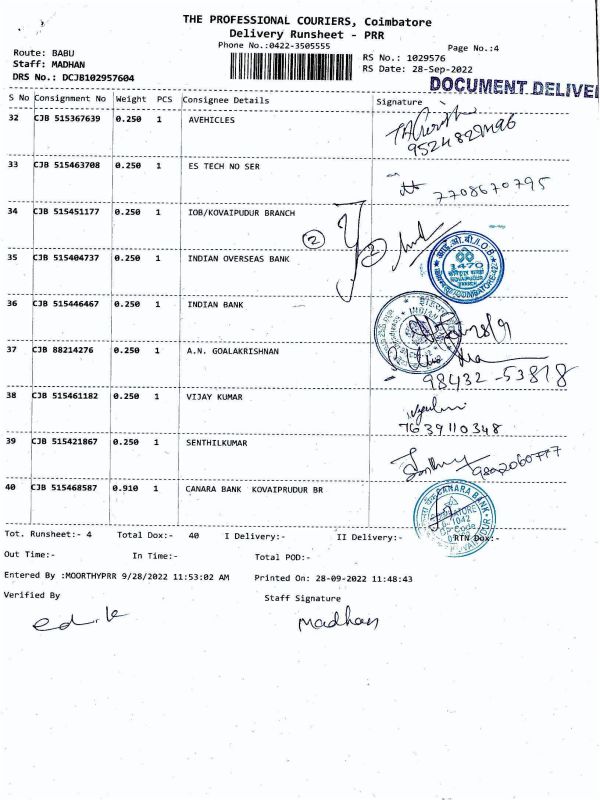 THE PROFESSIONAL COURIERS, Coimbatore
Delivery Runsheet - PRR
Phone No.:0422-3505555
Page No.:4
Route: BABU
Staff: MADHAN
DRS No.: DCJB102957604
RS No.: 1029576
RS Date: 28-Sep-2022
DOCUMENT DELIVE
S No Consignment No Weight PCS Consignee Details Signature
32 CJB 515367639 0.250 1 AVEHICLES
33 CJB 515463708 0.250 1 ES TECH NO SER
7708670795
34 CJB 515451177 0.250 1 IOB/KOVAIPUDUR BRANCH
2 2
35 CJB 515404737 0.250 1 INDIAN OVERSEAS BANK
1470
36 CJB 515446467 0.250 1 INDIAN BANK
37 CJB 88214276 0.250 1 A.N. GOALAKRISHNAN
98432-53818
38 CJB 515461182 0.250 1 VIJAY KUMAR
7639110348
39 CJB 515421867 0.250 1 SENTHILKUMAR
40 CJB 515468587 0.910 1 CANARA BANK KOVAIPRUDUR BR
CANARA BANK
1042
Tot. Runsheet:- 4 Total Dox:- 40 I Delivery:- II Delivery:- RTN Dox:-
Out Time:- In Time:- Total POD:-
Entered By :MOORTHYPRR 9/28/2022 11:53:02 AM Printed On: 28-09-2022 11:48:43
Verified By Staff Signature
Madhan